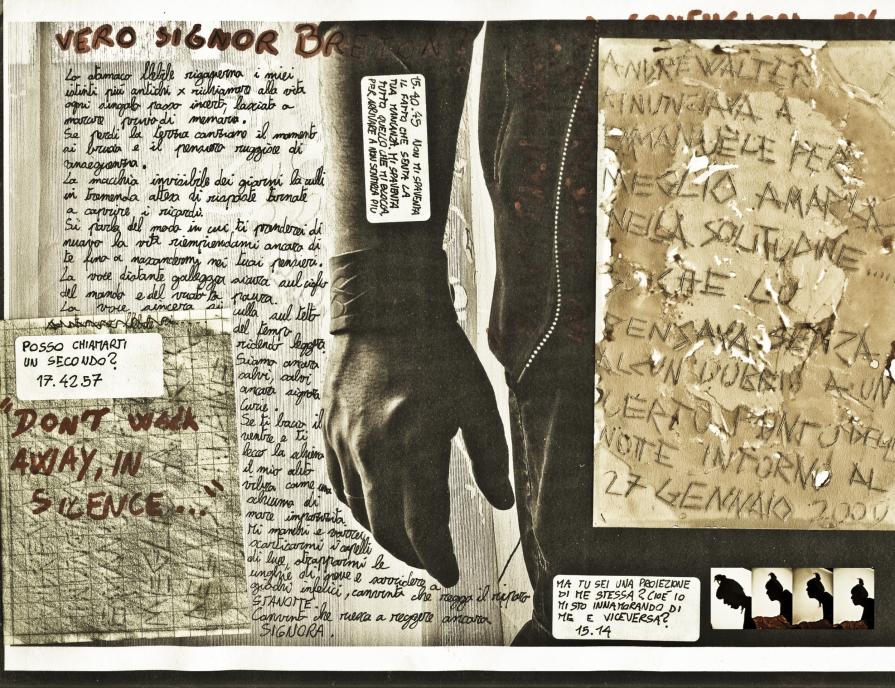 VERO SIGNOR BRETON?
Lo stomaco flebile rigoverna i miei
istinti più antichi x richiamare alla vita
ogni singolo passo incerto, lasciato a
marcire, privo di memoria.
Se perdi la terra cantiamo il momento
si brucia e il pensiero ruggisce di
La macchia invisibile dei giorni
in tremenda attesa di risposte tornale
a coprire i ricordi.
Si parla del modo in cui ti prenderai di
nuovo la vita riempiendomi ancora di
te fino a nascondermi nei tuoi pensieri.
La voce distante galleggia sicura sul ciglio
del mondo e del vuoto fa paura.
La voce sincera si culla sul tetto
del tempo
ridendo leggera
Siamo ancora
salvi, salvi
ancora signora
Curie.
Se ti bacio il
ventre e ti
lecco la schiena
il mio alito
vibra come una
schiuma di
mare improvvisa.
Mi manchi e vorrei
scorticarmi i capelli
di luce, strapparmi le
unghie di neve e sorridere a
giochi infelici, convinta che regga il riparo
STANOTTE.
Convinta che riesca a reggere ancora
SIGNORA.
15.40.45 NON MI SPAVENTA
IL FATTO CHE SENTA LA
TUA MANCANZA. MI SPAVENTA
TUTTO QUELLO CHE MI BLOCCA
PER ARRIVARE A NON SENTIRLA PIÙ
POSSO CHIAMARTI
UN SECONDO?
17.42.57
"DON'T WALK
AWAY, IN
SILENCE..."
ANDRÈ WALTER
RINUNCIAVA A
EMMANUÈLE PER
MEGLIO AMARLA
NELLA SOLITUDINE...
CHE LO
PENSAVA SENZA
ALCUN DUBBIO A UN
CERTO PUNTO DELLA
NOTTE INTORNO AL
27 GENNAIO 2000
MA TU SEI UNA PROIEZIONE
DI ME STESSA? CIOÈ IO
MI STO INNAMORANDO DI
ME E VICEVERSA?
15.14